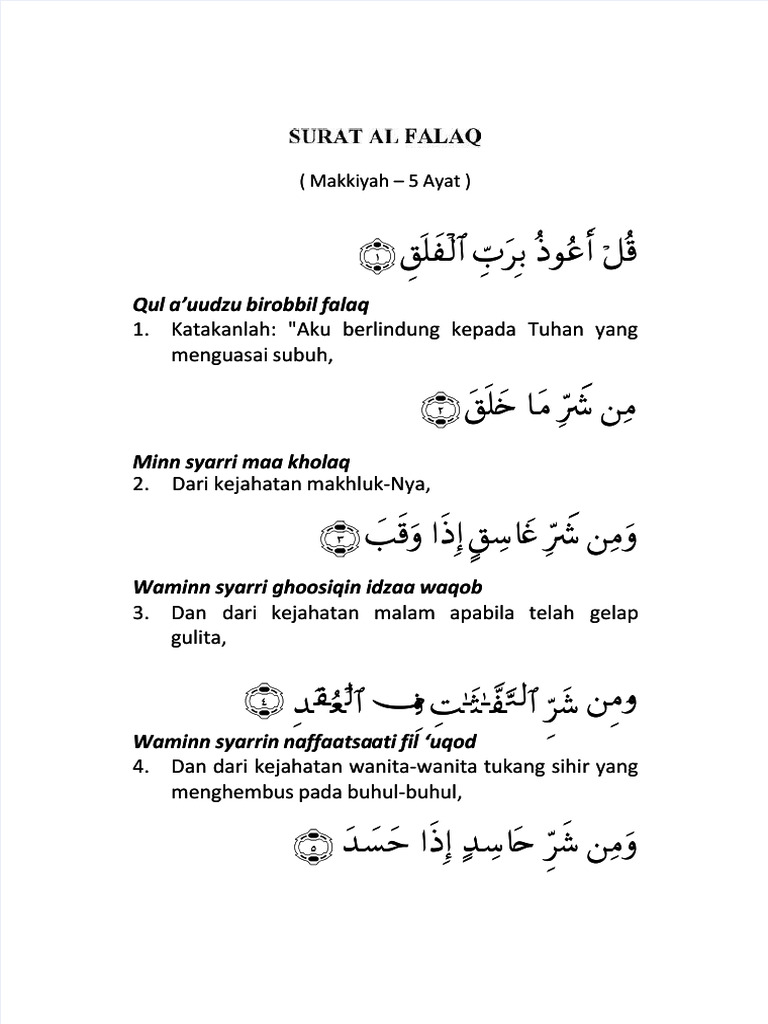 SURAT AL FALAQ
( Makkiyah – 5 Ayat )
قُلْ أَعُوذُ بِرَبِّ ٱلْفَلَقِ ١
Qul a’uudzu birobbil falaq
1. Katakanlah: "Aku berlindung kepada Tuhan yang
menguasai subuh,
مِن شَرِّ مَا خَلَقَ ٢
Minn syarri maa kholaq
2. Dari kejahatan makhluk-Nya,
وَمِن شَرِّ غَاسِقٍ إِذَا وَقَبَ ٣
Waminn syarri ghoosiqin idzaa waqob
3. Dan dari kejahatan malam apabila telah gelap
gulita,
ومِن شَرِّ ٱلنَّفَّـٰثَـٰتِ فِى ٱلْعُقَدِ ٤
Waminn syarrin naffaatsaati fil ‘uqod
4. Dan dari kejahatan wanita-wanita tukang sihir yang
menghembus pada buhul-buhul,
وَمِن شَرِّ حَاسِدٍ إِذَا حَسَدَ ٥